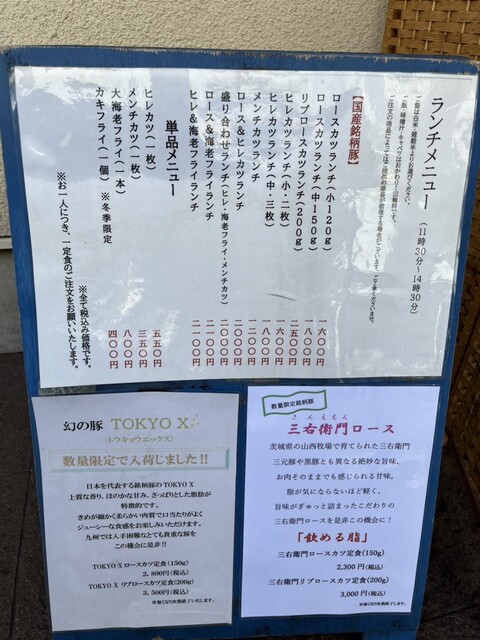 ランチメニュー (11時30分～14時30分)
ご飯は白米・雑穀米よりお選びください。
ご飯・味噌汁・キャベツはおかわり1回無料です。
ご注文の商品によってはご提供の順番が前後する場合がございます。ご了承くださいませ。
【国産銘柄豚】
ロースカツランチ(小120g) 一六〇〇円
ロースカツランチ(中150g) 一八〇〇円
リブロースカツランチ(200g) 二五〇〇円
ヒレカツランチ(小・二枚) 一六〇〇円
ヒレカツランチ(中・三枚) 一八〇〇円
メンチカツランチ
ロース&ヒレカツランチ 二〇〇〇円
盛り合わせランチ(ヒレ・海老フライ・メンチカツ) 二〇〇〇円
ロース&海老フライランチ 二一〇〇円
ヒレ&海老フライランチ 二一〇〇円
単品メニュー
ヒレカツ(一枚) 五五〇円
メンチカツ(一枚) 三五〇円
大海老フライ(一本) 八〇〇円
カキフライ(一個) ※冬季限定 四〇〇円
※全て税込み価格です。
※お一人につき、一定食のご注文をお願いいたします。
幻の豚 TOKYO X
(トウキョウエックス)
数量限定で入荷しました!!
日本を代表する銘柄豚のTOKYO X
上質な香り、ほのかな甘み、さっぱりとした脂肪が
特徴的です。
きめが細かく柔らかい肉質で口当たりがよく
ジューシーな食感をお楽しみいただけます。
九州では入手困難なとても貴重な豚を
この機会に是非!!
TOKYO X ロースカツ定食(150g)
2,800円(税込)
TOKYO X リブロースカツ定食(200g)
3,500円(税込)
※無くなり次第終了いたします。
数量限定銘柄豚
さんえもん
三右衛門ロース
茨城県の山西牧場で育てられた三右衛門
三元豚や黒豚とも異なる絶妙な旨味、
お肉そのままでも感じられる甘味。
脂が気にならないほど軽く、
旨味がぎゅっと詰まったこだわりの
三右衛門ロースを是非この機会に!
「飲める脂」
三右衛門ロースカツ定食(150g)
2,300円(税込)
三右衛門リブロースカツ定食(200g)
3,000円(税込)
※無くなり次第終了いたします。